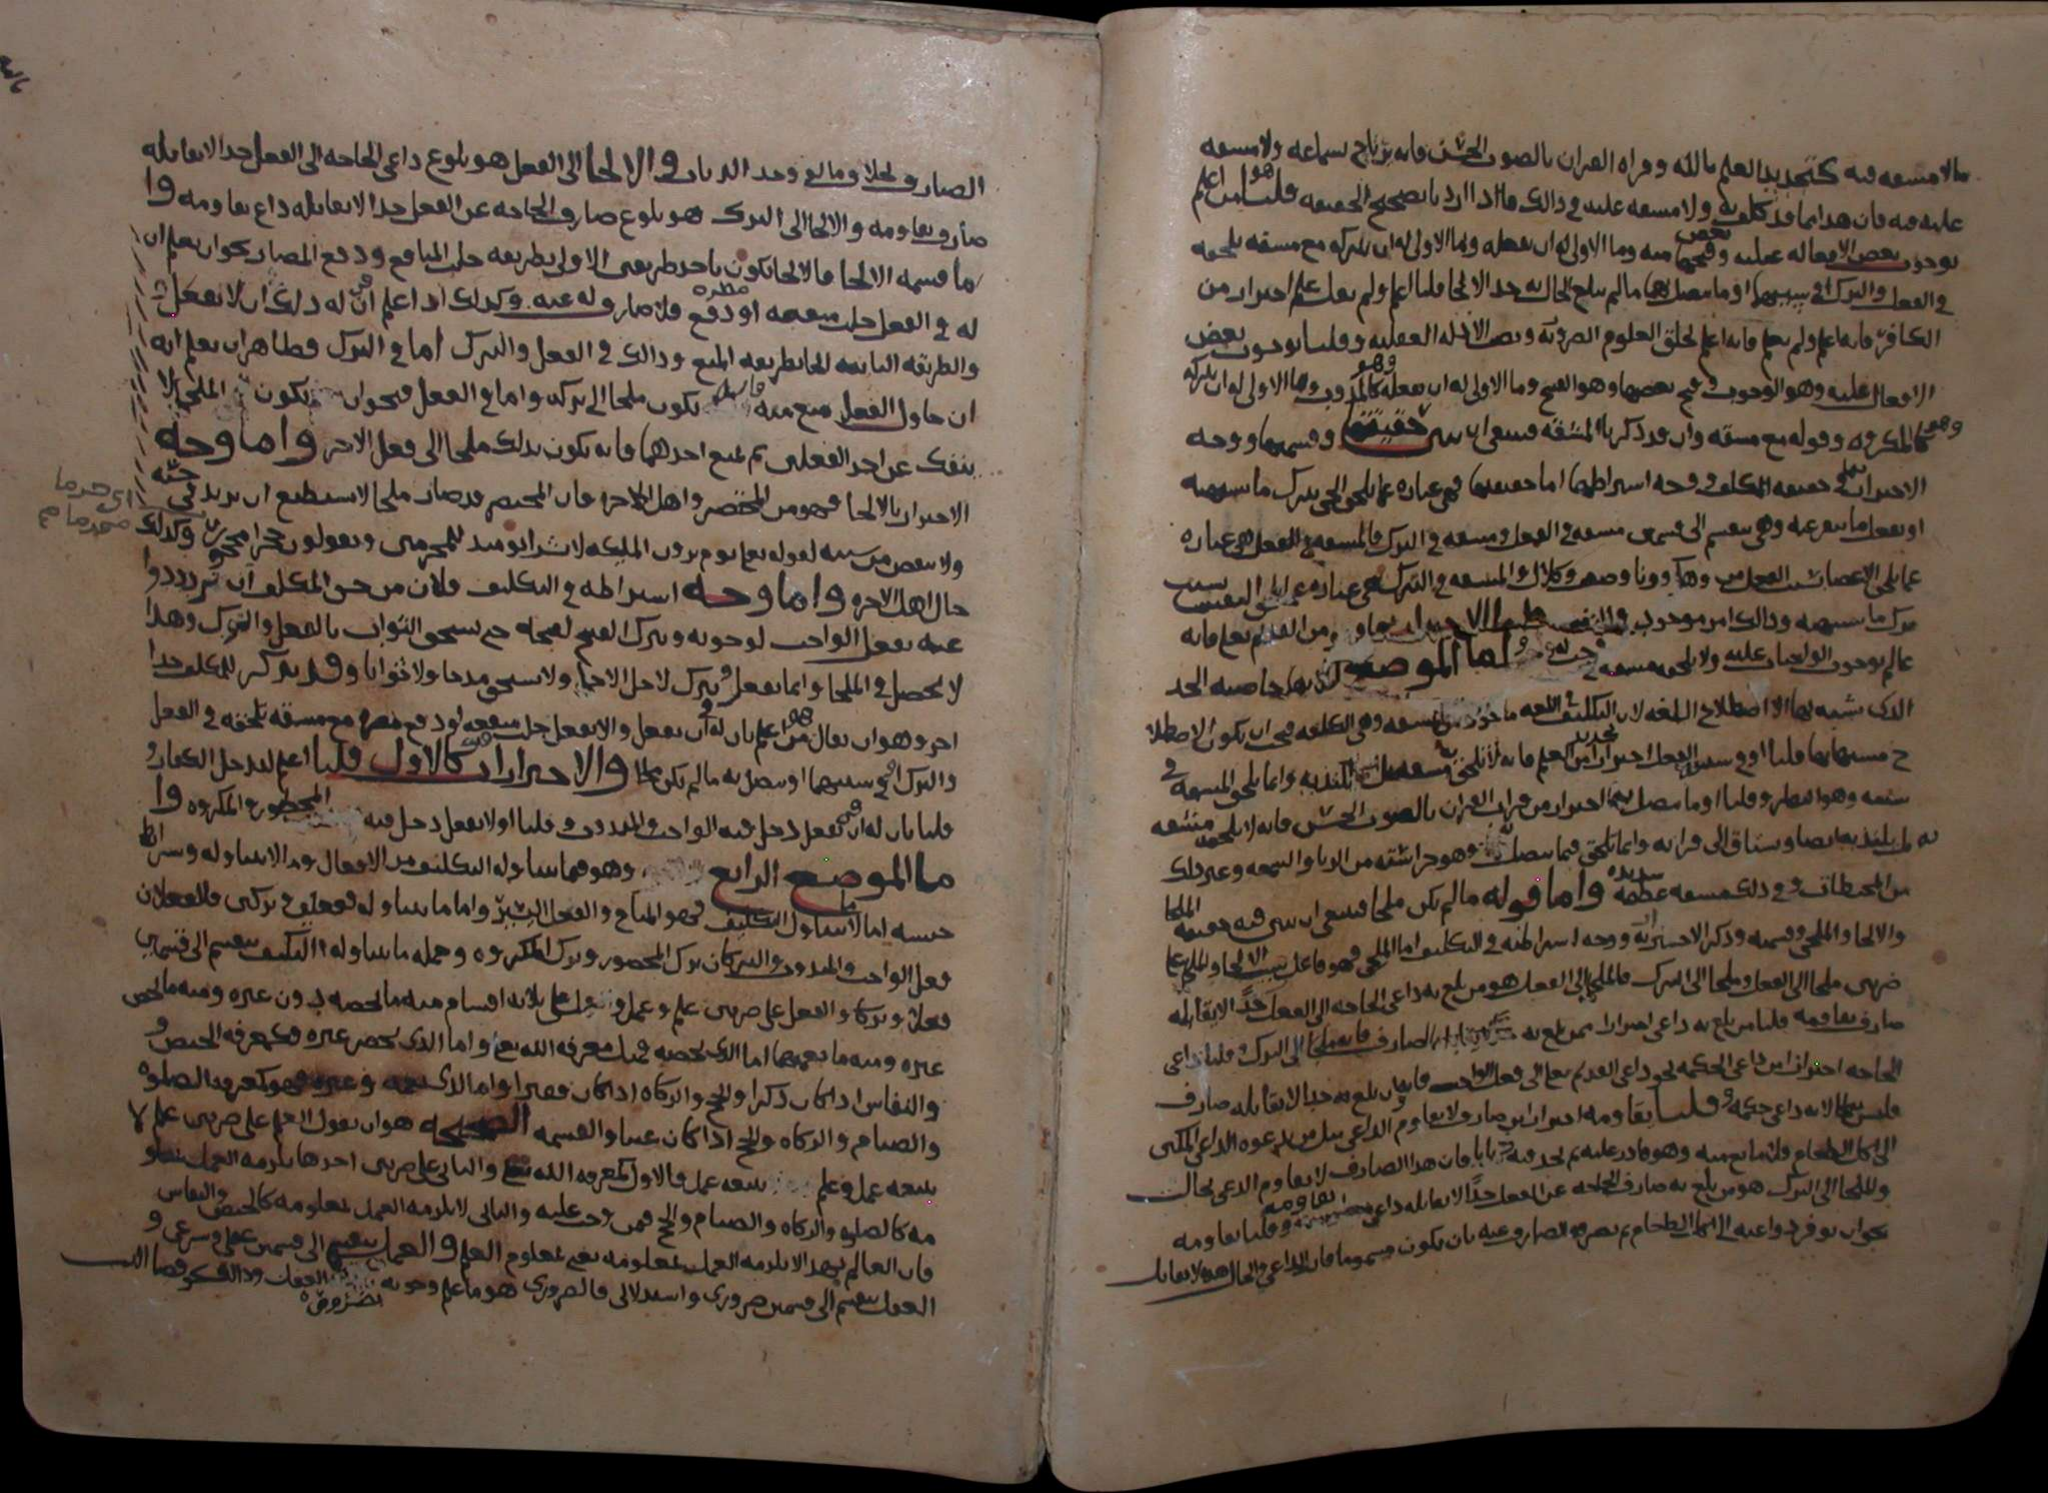 ما لا مشقه فيه كتجديد العلم بالله وقراه القران بالصوت الحسن فانه يرتاح بسماعه ولا مشقه
عليه فيه فان هذا مما قد كلف به ولا مشقه عليه في ذالك فاذا اردنا تصحيح الحقيقه قلنا هو من اعلم
بوجوب بعض الافعال عليه وقبح بعض منه وما الاولى له ان يفعله وما الاولى له ان يتركه مع مشقه تلحقه
في الفعل والترك او في سببهما او ما يتصل بهما ما لم يبلغ الحال به حد الالجا قلنا اعلم ولم نقل علم احتراز من
الكافر فانه اعلم ولم يعلم فانه اعلم بخلق العلوم الضروريه ونصب الادله العقليه وقلنا بوجوب بعض
الافعال عليه وهو الوجوب وقبح بعضها وهو القبيح وما الاولى له ان يفعله وهو كالمندوب وما الاولى له ان يتركه
وهو كالمكروه وقوله مع مشقه وان قد ذكرنا المشقه فينبغي ان نبين حقيقتها وقسمتها ووجه
الاحتراز بها في حقيقه المكلف ووجه اشتراطها اما حقيقتها فهي عباره عما يلحق الحي بترك ما يشتهيه
او بفعل ما ينفر عنه وهي تنقسم الى قسمين مشقه في الفعل ومشقه في الترك فالمشقه في الفعل هي عباره
عما يلحق الاعضا بسبب الفعل من وهاء وونا وضعف وكلال والمشقه في الترك هي عباره عما يلحق النفس بسبب
ترك ما يشتهيه وذالك امر موجود من النفس واما الاحتراز بها فهو من القديم تعلى فانه
عالم بوجوب الواجبات عليه ولا يلحقه مشقه في
الذي نشبه بها الاصطلاح اللغه لان التكليف في اللغه ماخوذ من المشقه وهي الكلفه فيجب ان يكون الاصطلا
ح مشبها بها قلنا او في سبب الفعل احتراز من تجديد العلم فانه لا يلحق به مشقه بل يلتذ به وانما يلحق المشقه في
سببه وهو النظر وقلنا او ما يتصل بهما احتراز من قراه القران بالصوت الحسن فانه لا يلحقه مشقه
به بل يلتذ به ايضا ويشتاق الى قراته وانما تلحق فيما يتصل به وهو حراسته من الريا والسمعه وغير ذلك
من المحبطات وفي ذلك مشقه عظيمه شديده واما قوله ما لم يكن ملجا فينبغي ان نبين فيه حقيقه الملجا
والالجا والملجي وقسمته وذكر الاحتراز به ووجه اشتراطه في التكليف اما الملجي فهو فاعل سبب الالجا والملجا على
ضربين ملجا الى الفعل وملجا الى الترك فالملجا الى الفعل هو من بلغ به داعي الحاجه الى الفعل حدا لا يقابله
صارف يقاومه قلنا من بلغ به داعي احترازا ممن بلغ به الصارف فانه ملجا الى الترك وقلنا داعي
الحاجه احترازا من داعي الحكمه نحو داعي القديم تعلى الى فعل الواجب فانه وان بلغ به حدا لا يقابله صارف
فليس بملجا لانه داعي حكمه وقلنا يقاومه احترازا من صارف لا يقاوم الداعي مثل من يدعوه الداعي المكين
الى اكل الطعام فلا مانع منه وهو قادر عليه ثم يجد فيه ذبابا فان هذا الصارف لا يقاوم الداعي بحال
والملجا الى الترك هو من بلغ به صارف الحاجه عن الفعل حدا لا يقابله داعي يقاومه وقلنا يقاومه
بجواز توفر دواعيه الى اكل الطعام ثم يصرفه الصارف عنه بان يكون مسموما فان الداعي والحال هذه لا يقابل
الصارف
والالجا الى الفعل هو بلوغ داعي الحاجه الى الفعل حدا لا يقابله
صارف يقاومه والالجا الى الترك هو بلوغ صارف الحاجه عن الفعل حدا لا يقابله داع يقاومه وا
ما قسمه الالجا فالالجا يكون باحد طريقين الاولى بطريقه جلب المنافع ودفع المضار نحو ان يعلم ان
له في الفعل جلب منفعه او دفع مضره ولا صارف له عنه وكذلك اذا اعلم ان له ذلك في ان لا يفعل
والطريقه الثانيه الجا بطريقه المنع وذالك في الفعل والترك اما في الترك فظاهر ان يعلم انه
ان حاول الفعل منع منه فانه يكون ملجا الى تركه واما في الفعل فنحو ان يكون الملجا لا
ينفك عن احد الفعلين ثم يمنع احدهما فانه يكون بذلك ملجا الى فعل الاخر واما وجه
الاحتراز بالالجا فهو من المحتضر واهل الاخره فان المحتضر قد صار ملجا لا يستطيع ان يزيد في حسنه
ولا ينقص من سيئه لقوله تعلى يوم يرون المليكه لا بشرى يوميذ للمجرمين ويقولون حجرا محجورا وكذلك
حال اهل الاخره واما وجه اشتراطه في التكليف فلان من حق المكلف ان تتردد دوا
عيه بفعل الواجب لوجوبه ويترك القبيح لقبحه حتى يستحق الثواب بالفعل والترك وهذا
لا يحصل في الملجا وانما يفعل ويترك لاجل الالجا ولا يستحق مدحا ولا ثوابا وقد يذكر للمكلف حدا
اخر وهو ان يقال هو من اعلم بان له في ان يفعل والا يفعل جلب منفعه او دفع مضره مع مشقه تلحقه في الفعل
والترك او في سببهما او يتصل به ما لم يكن ملجا والاحترازات كالاول قلنا اعلم ليدخل الكفار و
قلنا بان له في ان يفعل دخل فيه الواجب والمندوب وقلنا او لا يفعل دخل فيه المحظور والمكروه وا
ما الموضع الرابع وهو فيما يتناوله التكليف من الافعال وما لا يتناوله وشرايط
حسنه اما ما لا يتناوله التكليف فهو المباح والفعل اليسير واما ما يتناوله ففعلين وتركين فالفعلان
فعل الواجب والمندوب والتركان ترك المحضور وترك المكروه وجمله ما يتناوله التكليف ينقسم الى قسمين
فعلا وتركا والفعل على ضربين علم وعمل وذلك على ثلاثه اقسام منه ما يخصه دون غيره ومنه ما يخص
غيره ومنه ما يعمهما اما الذي يخصه فمثل معرفه الله تعلى واما الذي يخص غيره فكمعرفه الحيض و
والنفاس اذا كان ذكرا والحج والزكاه اذا كان فقيرا واما الذي يعمه وغيره فهو كمعرفه الصلوه
والصيام والزكاه والحج اذا كان غنيا والقسمه الصحيحه هو ان يقول العلم على ضربين علم لا
يتبعه عمل وعلم يتبعه عمل فالاول كمعرفه الله تعلى والثاني على ضربين احدهما يلزمه العمل بمعلو
مه كالصلوه والزكاه والصيام والحج فمن وجب عليه والثاني لا يلزمه العمل بمعلومه كالحيض والنفاس
فان العالم بهذا لا يلزمه العمل بمعلومه نعني بمعلوم العلم والعمل ينقسم الى قسمين عقلي وشرعي و
العقلي ينقسم الى قسمين ضروري واستدلالي فالضروري هو ما علم وجوبه بضروره العقل وذالك كقضا الد